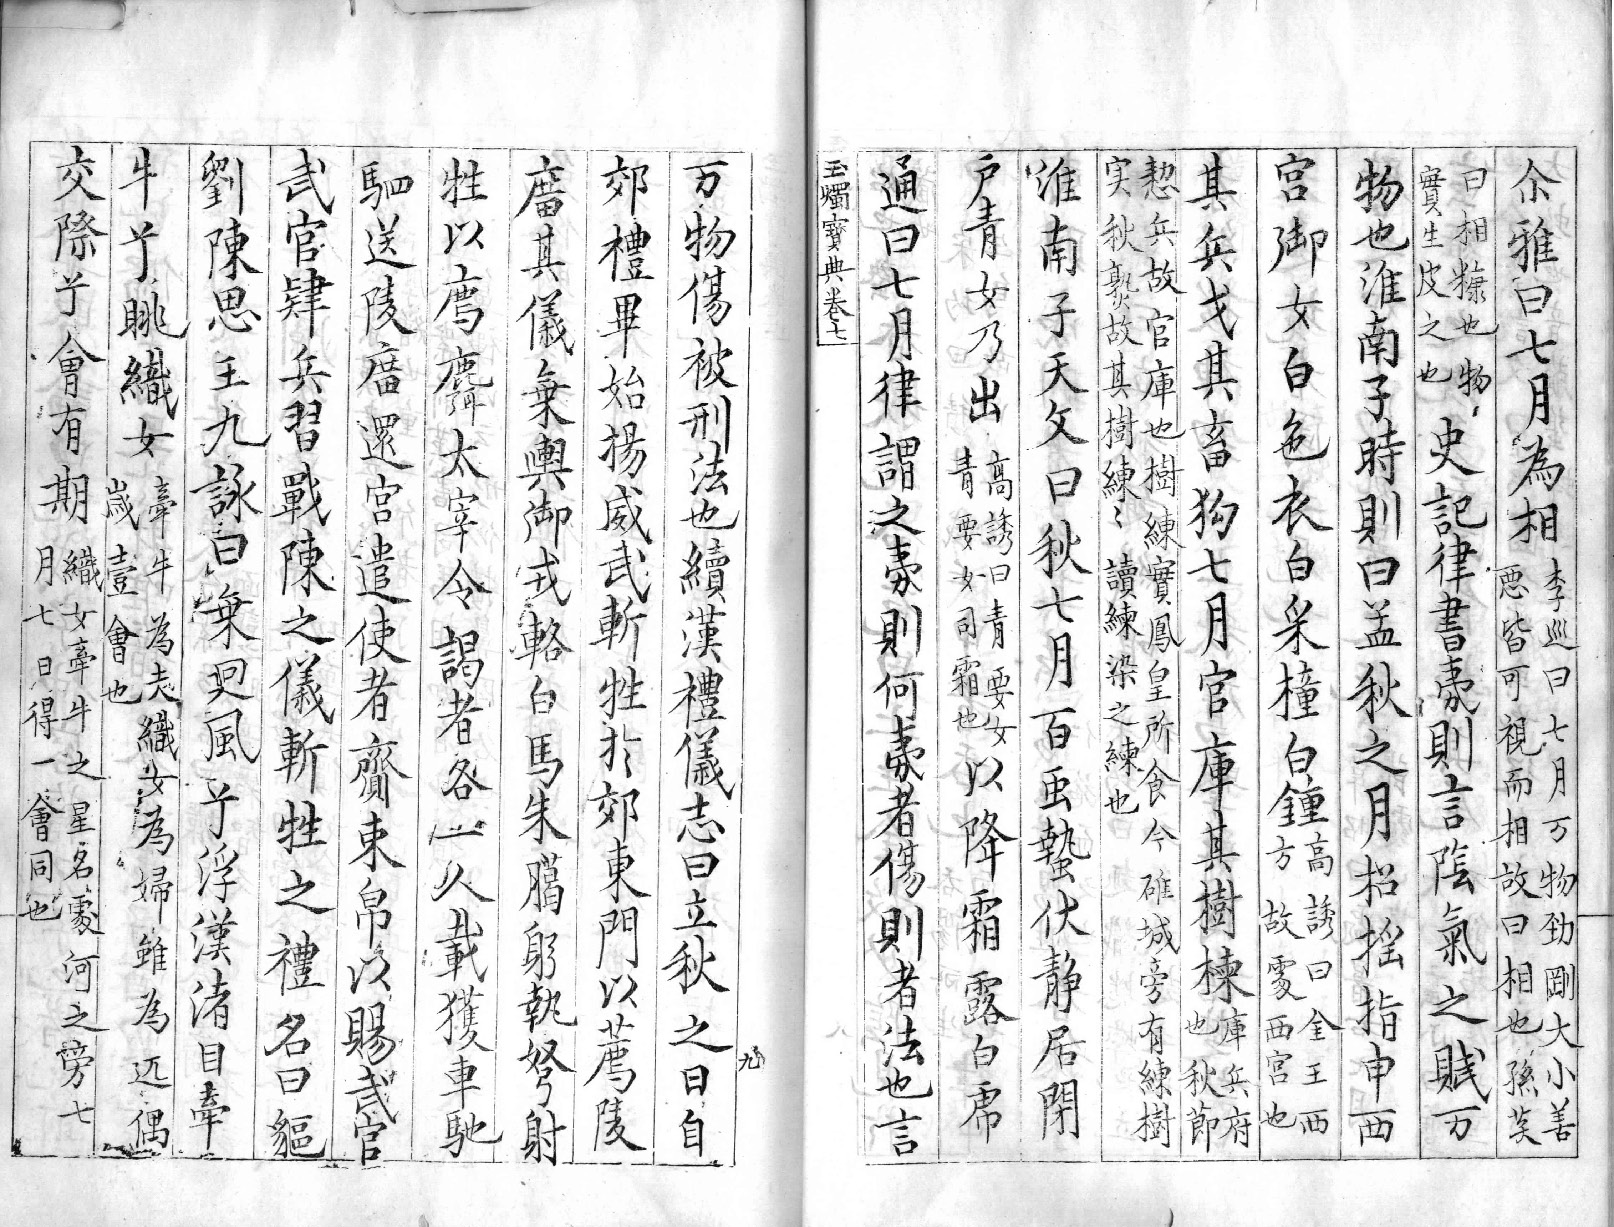 尒雅曰七月為相李巡曰七月万物勁剛大小善
惡皆可視而相故曰相也孫炎
曰相糠也物
實生皮之也史記律書夷則言陰氣之賊万
物也淮南子時則曰孟秋之月招搖指申西
宮御女白色衣白采撞白鍾高誘曰金王西
方故處西宮也
其兵戈其畜狗七月官庫其樹楝庫兵府
也秋節
懃兵故官庫也樹練實鳳皇所食今碓城旁有練樹
实秋熟故其樹練〻讀練染之練也
淮南子天文曰秋七月百虫蟄伏静居閉
戶青女乃出高誘曰青要女
青要女司霜也以降霜露白帝
通曰七月律謂之夷則何夷者傷則者法也言
玉燭寶典卷七
九
万物傷被刑法也續漢禮儀志曰立秋之日自
郊禮畢始揚威武斬牲扵郊東門以薦陵
廟其儀乗輿御戎輅白馬朱鬣躬執弩射
牲以鹿麛太宰令謁者各一人載獲車馳
駟送陵廟還宮遣使者齎束帛以賜武官
武官肄兵習戰陳之儀斬牲之禮名曰貙
劉陳思王九詠曰乗廻風兮浮漢渚目牽
牛兮眺織女牽牛為夫織女為婦雖為迊偶
歲壹會也
交際兮會有期織女牽牛之星各處河之旁七
月七日得一會同也